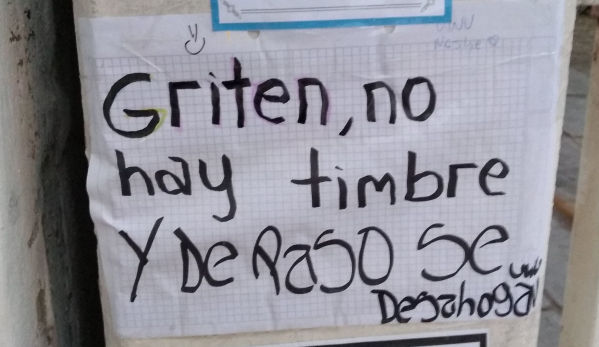 Griten, no
hay timbre
Y De PaSO Se
Desahogan
uwu